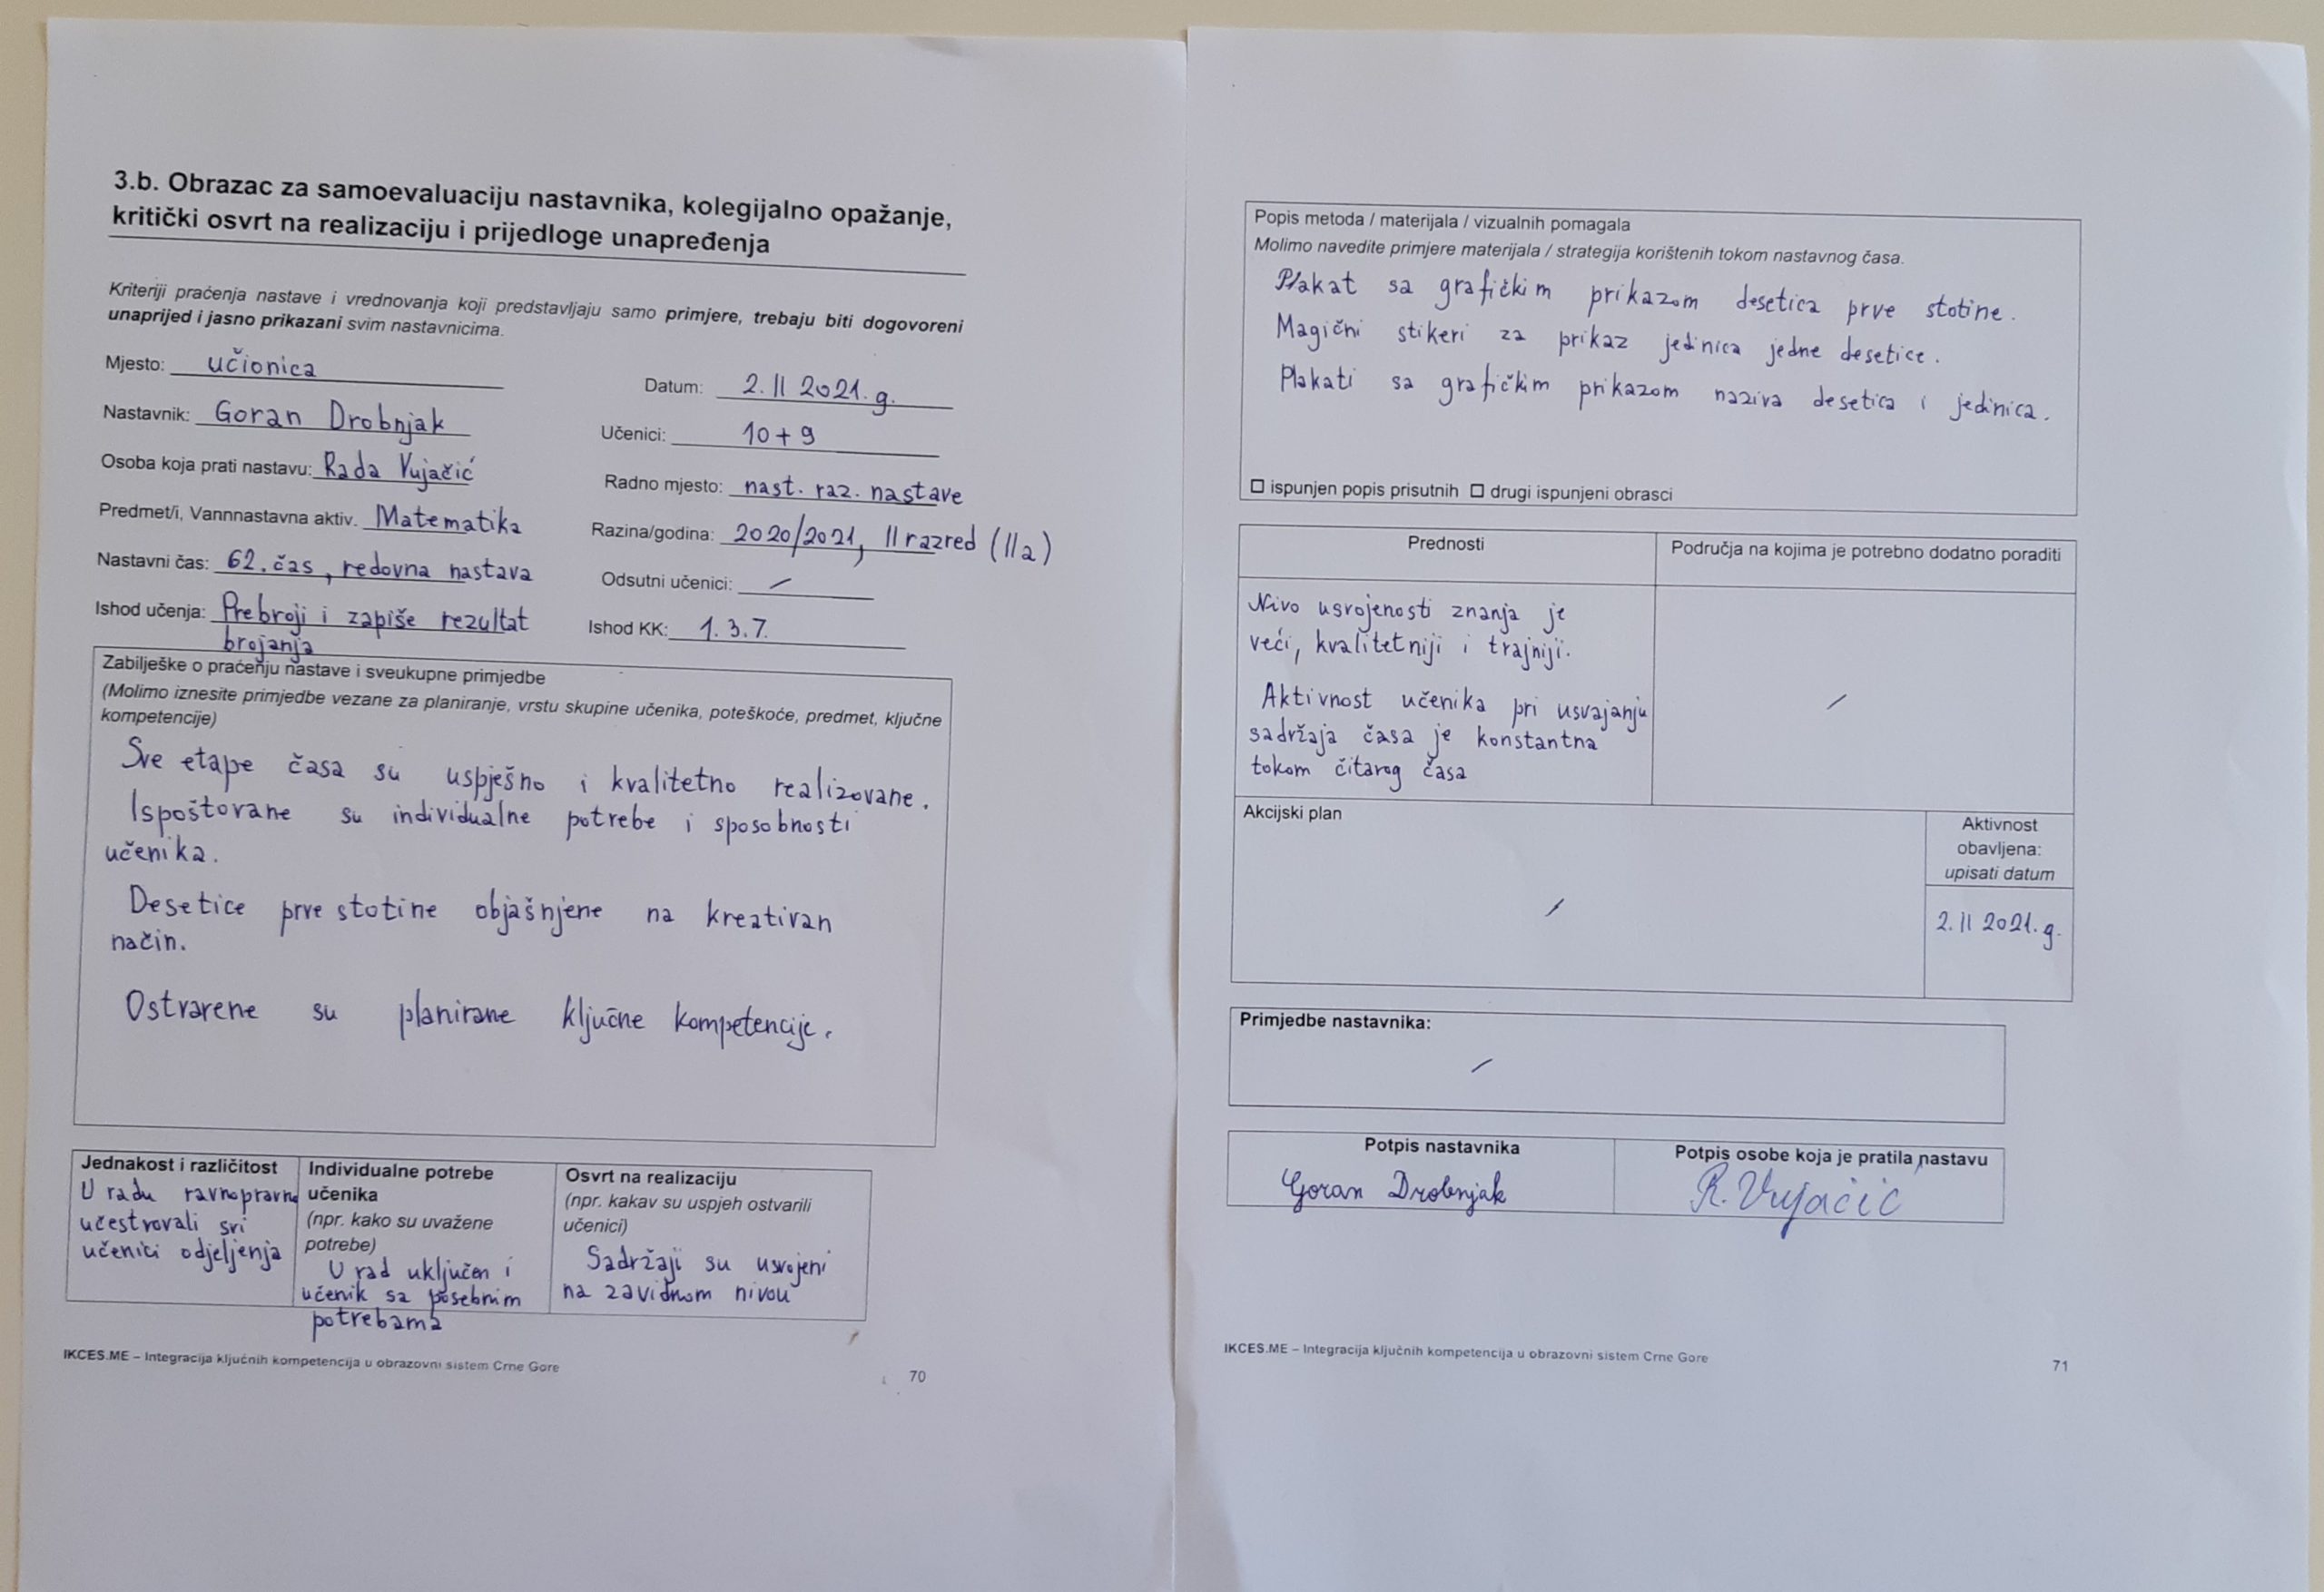 3.b. Obrazac za samoevaluaciju nastavnika, kolegijalno opažanje,
kritički osvrt na realizaciju i prijedloge unapređenja
Kriteriji praćenja nastave i vrednovanja koji predstavljaju samo primjere, trebaju biti dogovoreni
unaprijed i jasno prikazani svim nastavnicima.
Mjesto: učionica
Datum: 2. II 2021. g.
Nastavnik: Goran Drobnjak
Učenici: 10 + 9
Osoba koja prati nastavu: Rada Vujačić
Radno mjesto: nast. raz. nastave
Predmet/i, Vannnastavna aktiv. Matematika
Razina/godina: 2020/2021, II razred (IIa)
Nastavni čas: 62. čas, redovna nastava
Odsutni učenici: /
Ishod učenja: Prebroji i zapiše rezultat
brojanja
Ishod KK: 1.3.7.
Zabilješke o praćenju nastave i sveukupne primjedbe
(Molimo iznesite primjedbe vezane za planiranje, vrstu skupine učenika, poteškoće, predmet, ključne
kompetencije)
Sve etape časa su uspješno i kvalitetno realizovane.
Ispoštovane su individualne potrebe i sposobnosti
učenika.
Desetice prve stotine objašnjene na kreativan
način.
Ostvarene su planirane ključne kompetencije.
Jednakost i različitost
U radu ravnopravno
učestvovali svi
učenici odjeljenja
Individualne potrebe
učenika
(npr. kako su uvažene
potrebe)
U rad uključen i
učenik sa posebnim
potrebama
Osvrt na realizaciju
(npr. kakav su uspjeh ostvarili
učenici)
Sadržaji su usvojeni
na zavidnom nivou
IKCES.ME – Integracija ključnih kompetencija u obrazovni sistem Crne Gore
70
Popis metoda / materijala / vizualnih pomagala
Molimo navedite primjere materijala / strategija korištenih tokom nastavnog časa.
Plakat sa grafičkim prikazom desetica prve stotine.
Magični stikeri za prikaz jedinica jedne desetice.
Plakati sa grafičkim prikazom naziva desetica i jedinica.
☐ ispunjen popis prisutnih ☐ drugi ispunjeni obrasci
Prednosti
Područja na kojima je potrebno dodatno poraditi
Nivo usvojenosti znanja je
veći, kvalitetniji i trajniji.
Aktivnost učenika pri usvajanju
sadržaja časa je konstantna
tokom čitavog časa
/
Akcijski plan
/
Aktivnost
obavljena:
upisati datum
2. II 2021. g.
Primjedbe nastavnika:
/
Potpis nastavnika
Goran Drobnjak
Potpis osobe koja je pratila nastavu
R. Vujačić
IKCES.ME – Integracija ključnih kompetencija u obrazovni sistem Crne Gore
71